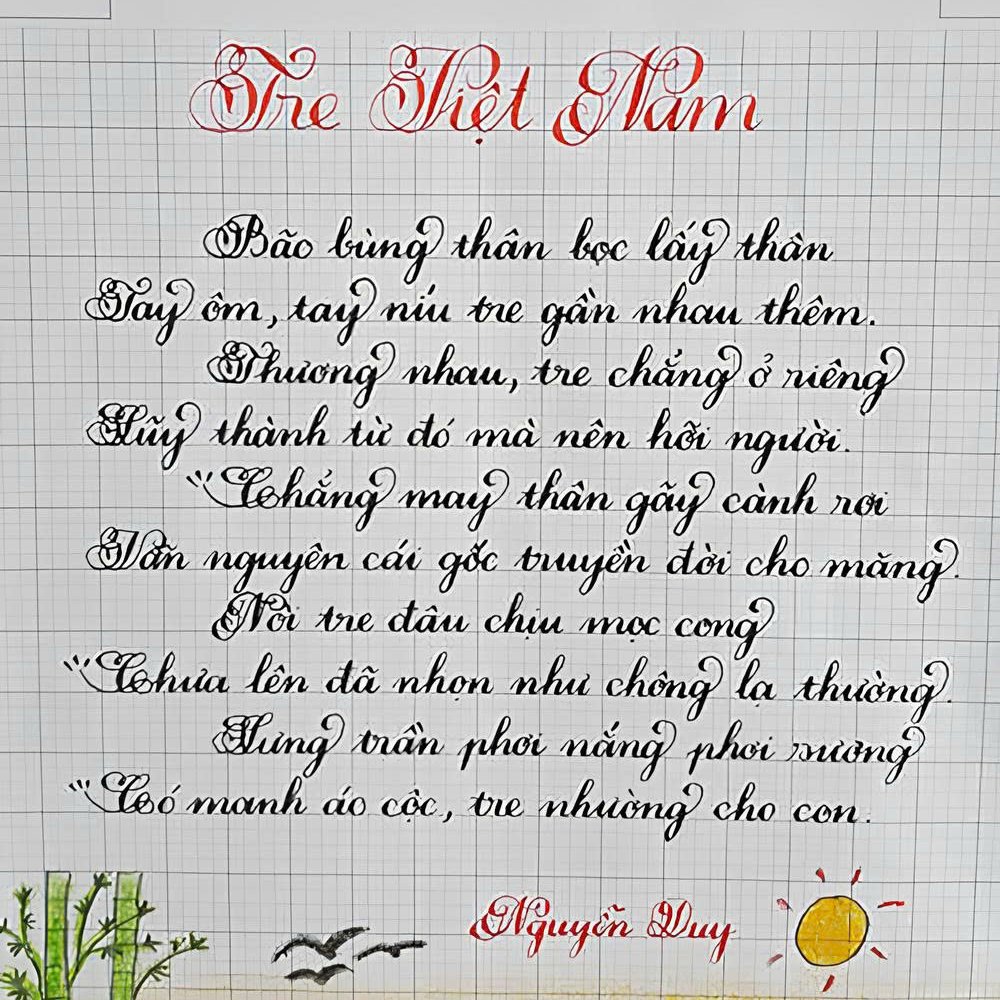 Tre Việt Nam
Bão bùng thân bọc lấy thân
Tay ôm, tay níu tre gần nhau thêm.
Thương nhau, tre chẳng ở riêng
Lũy thành từ đó mà nên hỡi người.
Chẳng may thân gãy cành rơi
Vẫn nguyên cái gốc truyền đời cho măng.
Nòi tre đâu chịu mọc cong
Chưa lên đã nhọn như chông lạ thường.
Lưng trần phơi nắng phơi sương
Có manh áo cộc, tre nhường cho con.
Nguyễn Duy